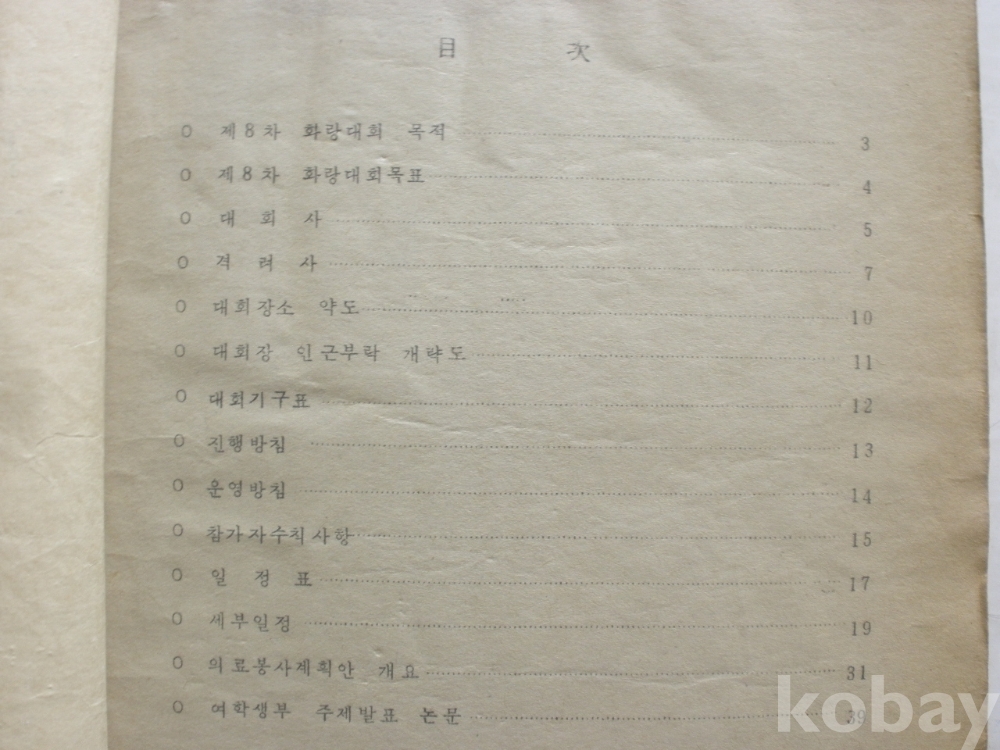 目 次
○ 제8차 화랑대회 목적 3
○ 제8차 화랑대회목표 4
○ 대 회 사 5
○ 격 려 사 7
○ 대회장소 약도 10
○ 대회장 인근부락 개략도 11
○ 대회기구표 12
○ 진행방침 13
○ 운영방침 14
○ 참가자수칙사항 15
○ 일 정 표 17
○ 세부일정 19
○ 의료봉사계획안 개요 31
○ 여학생부 주제발표 논문 39
kobay